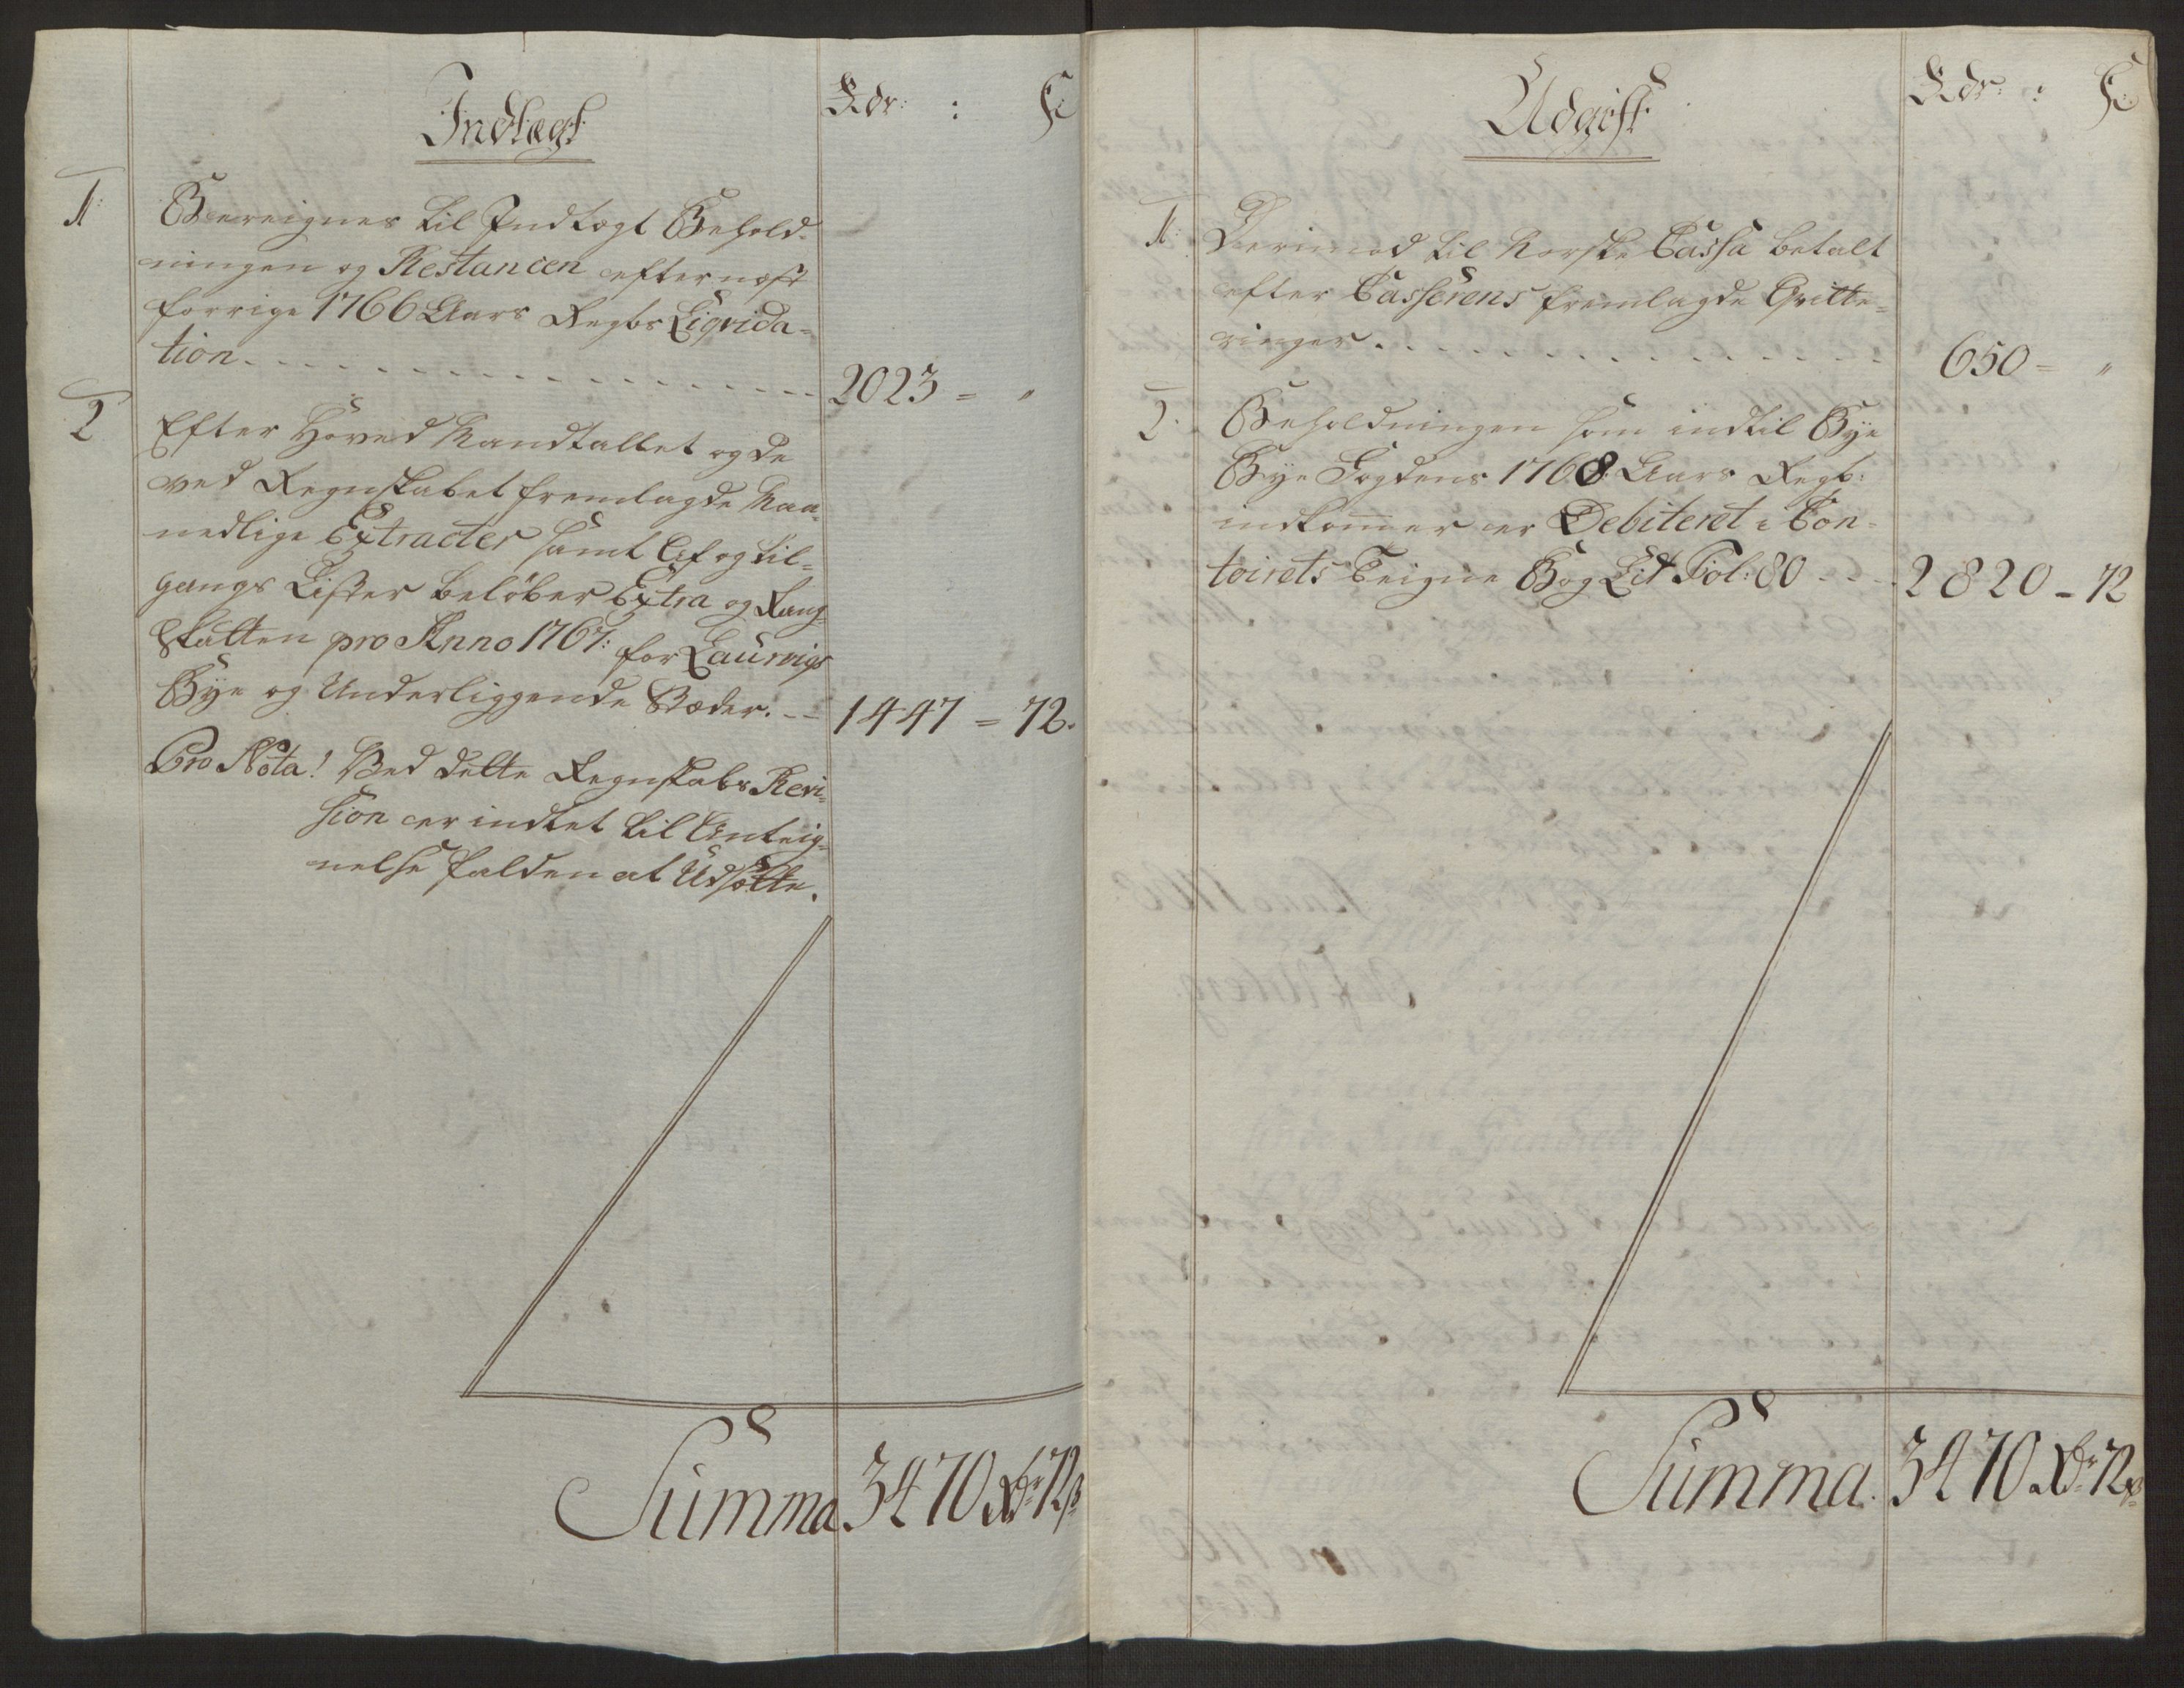 Indtægt
Rdr: : ß
1: Bereignes til Indtægt Behold-
ningen og Restancen efter næst
forrige 1766 Aars Regbs Liqvida-
tion - - - 2023 = "
2 Efter Hoved Mandtallet og de
ved Regnskabet fremlagde Maa-
nedlige Extracter samt Af og til-
gangs Lister beløber Extra og Rang
Skatten pro Anno 1767: for Laurvigs
Bye og Underliggende Stæder. - - 1447 = 72.
Pro Nota! Ved dette Regnskabs Revi-
sion er indtet til Anteig-
nelse falden at Udsætte.
Summa 3470 Rdr 72 ß
Udgift
Rdr: : ß
1: Derimod til Norske Cassa betalt
efter Casserens fremlagde Qvitte-
ringer. - - - 650 = "
2: Beholdningen som indtil Bye
Bye Fogdens 1768 Aars Regb:
indkommer er Debiteret i Con-
toirets Teigne Bog Lit Fol: 80 - - - 2820 - 72
Summa. 3470 Rdr 72 ß